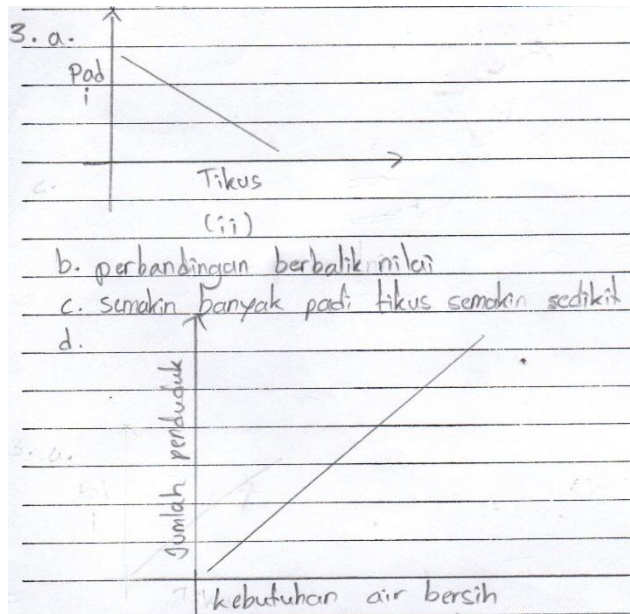 3. a.
Pad
i
Tikus
(ii)
b. perbandingan berbalik nilai
c. semakin banyak padi tikus semakin sedikit
d.
Jumlah penduduk
kebutuhan air bersih